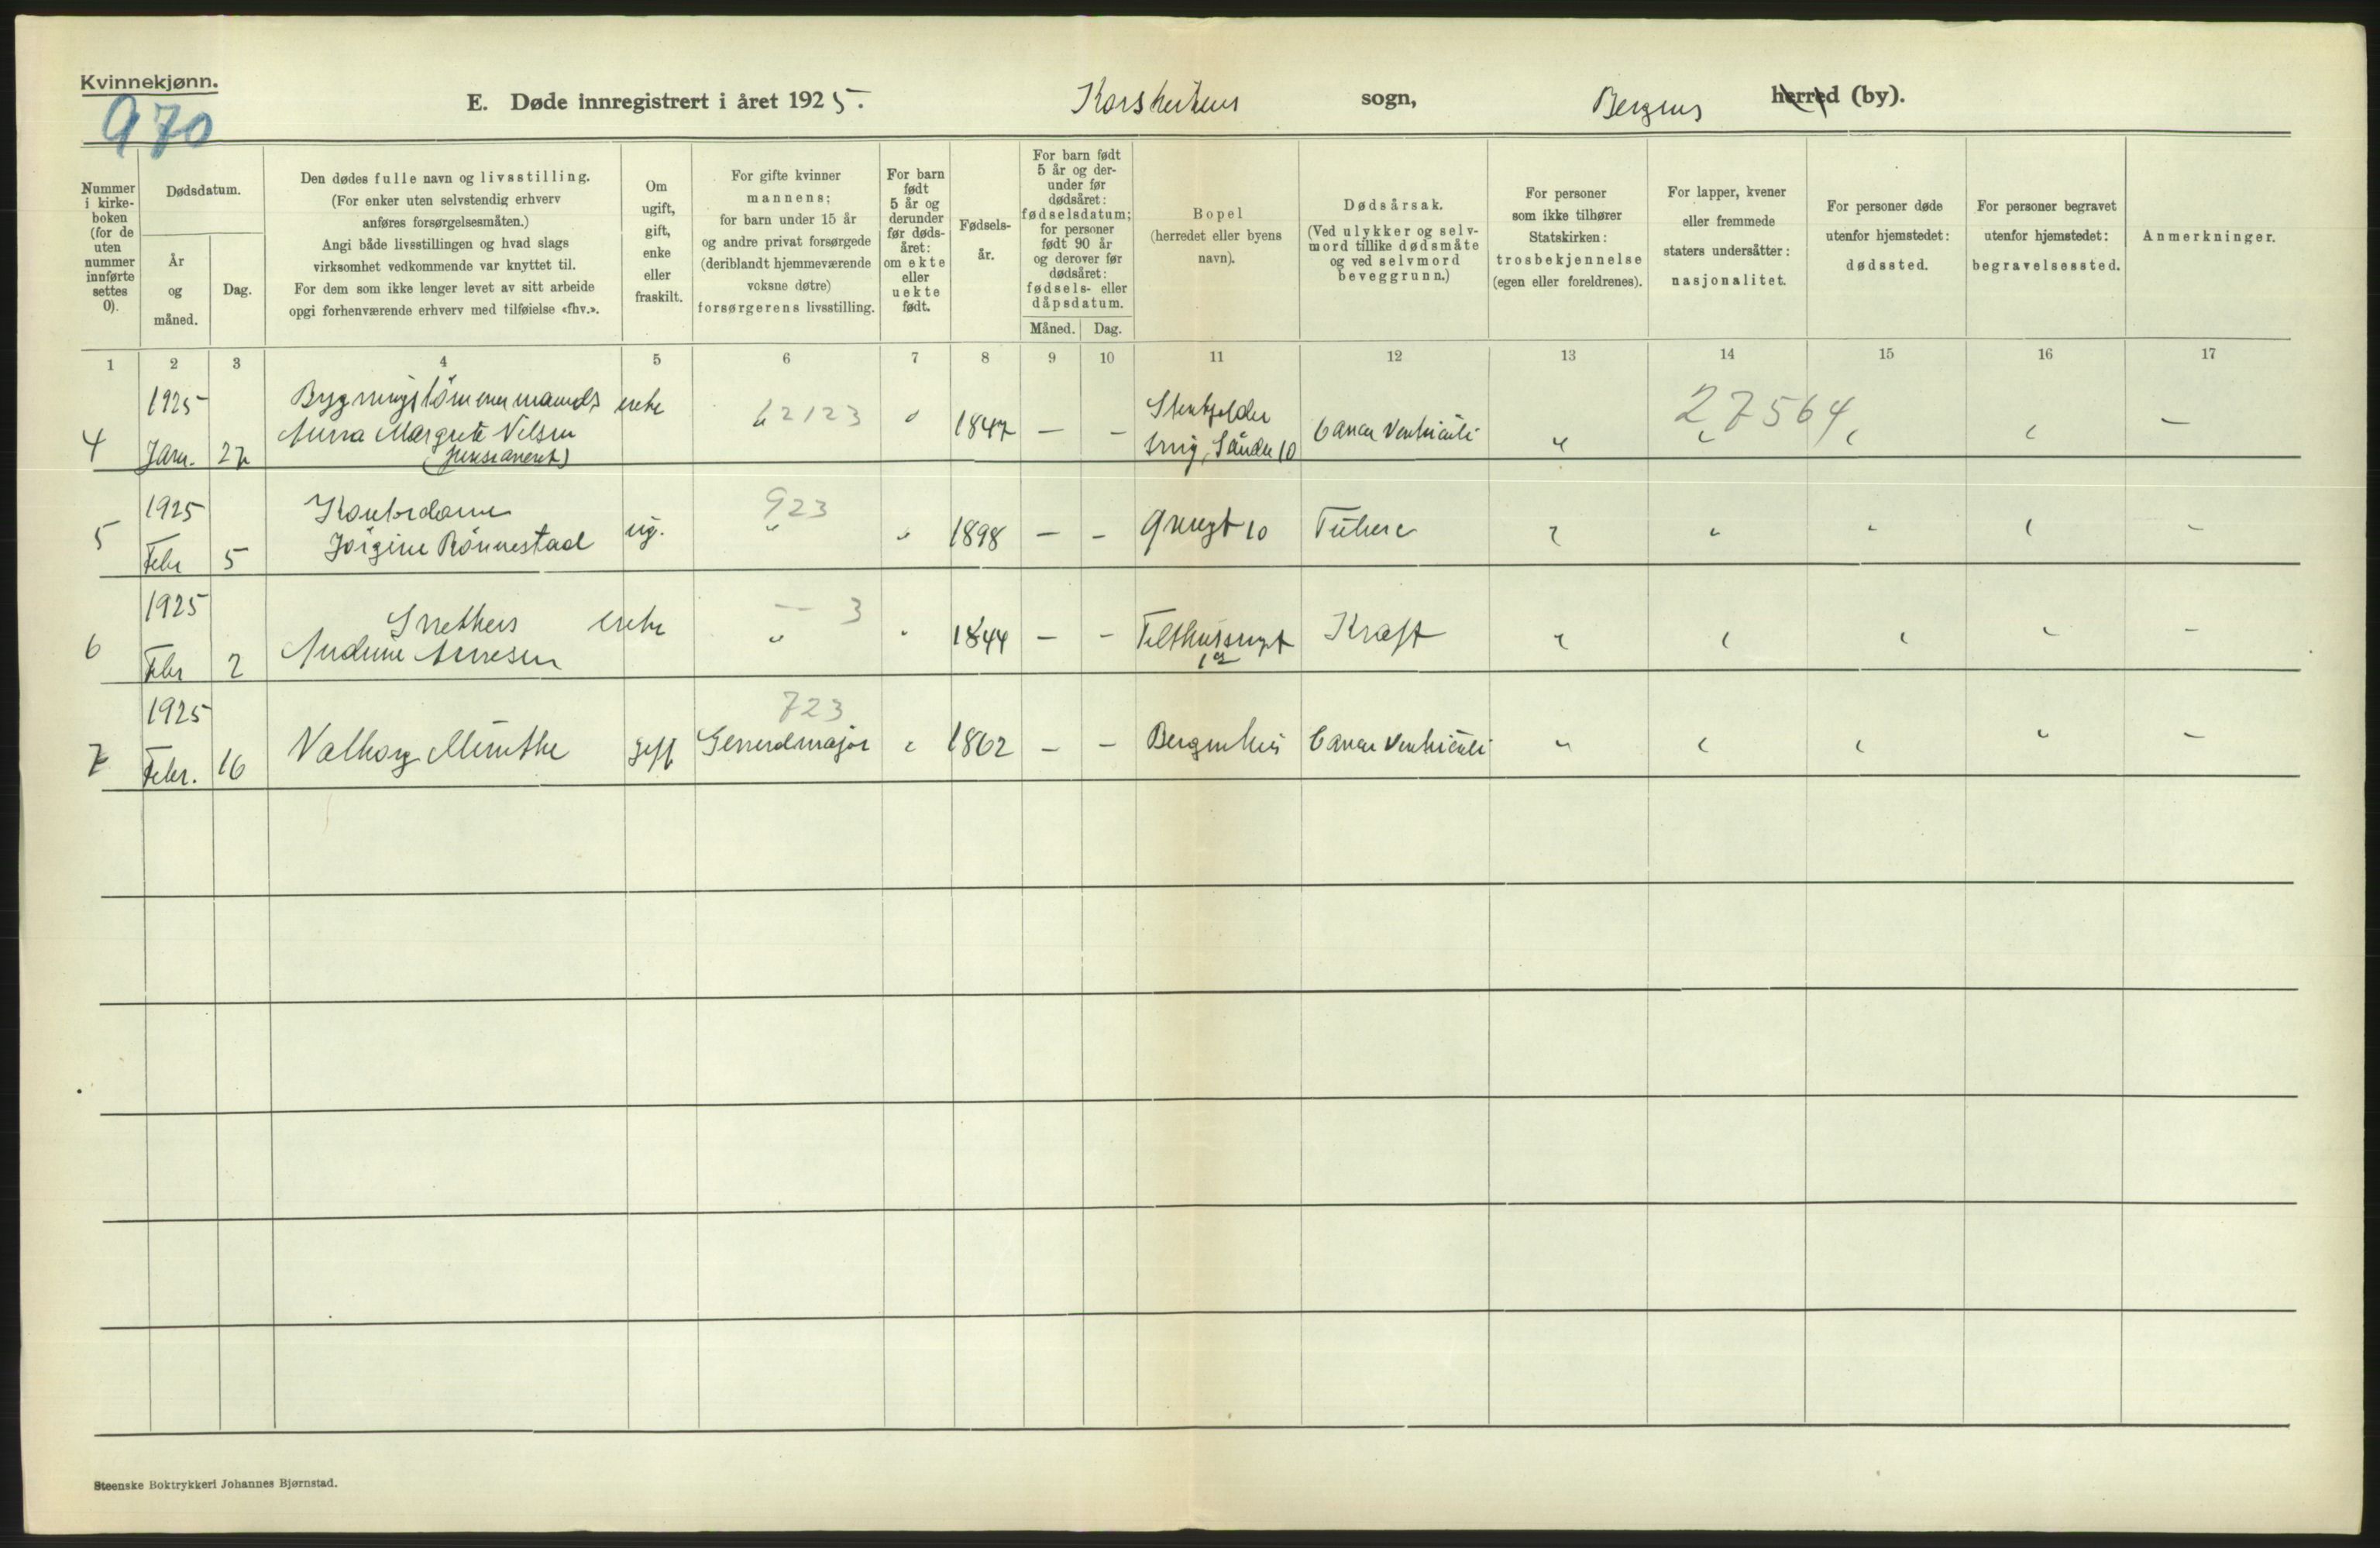 Kvinnekjønn.
970
E. Døde innregistrert i året 1925.
Korskirkens sogn, Bergens herred (by).
Nummer i kirke-boken (for de uten nummer innførte settes 0).
Dødsdatum.
År og måned.
Dag.
Den dødes fulle navn og livsstilling.
(For enker uten selvstendig erhverv
anføres forsørgelsesmåten.)
Angi både livsstillingen og hvad slags
virksomhet vedkommende var knyttet til.
For dem som ikke lenger levet av sitt arbeide
opgi forhenværende erhverv med tilføielse «fhv.».
Om ugift, gift, enke eller fraskilt.
For gifte kvinner
mannens;
for barn under 15 år
og andre privat forsørgede
(deriblandt hjemmeværende
voksne døtre)
forsørgerens livsstilling.
For barn født 5 år og derunder før døds-året: om ekte eller uekte født.
Fødsels-år.
For barn født 5 år og der-under før dødsåret: fødselsdatum; for personer født 90 år og derover før dødsåret: fødsels- eller dåpsdatum.
Måned.
Dag.
Bopel
(herredet eller byens
navn).
Dødsårsak.
(Ved ulykker og selv-
mord tillike dødsmåte
og ved selvmord
beveggrunn.)
For personer
som ikke tilhører
Statskirken:
trosbekjennelse
(egen eller foreldrenes).
For lapper, kvener
eller fremmede
staters undersåtter:
nasjonalitet.
For personer døde
utenfor hjemstedet:
dødssted.
For personer begravet
utenfor hjemstedet:
begravelsessted.
Anmerkninger.
1 2 3 4 5 6 7 8 9 10 11 12 13 14 15 16 17
1925 Bygningstömmermands enke 12123 27564
4 Jan. 27 Anna Margrete Nilsen 1847 — — Sandv 10 Cancer Ventriculi " —
1925 Kontordame 923
5 Febr 5 Jörgine Rönnestad ug. " " 1898 — — 10 Tuberc " " " " —
1925 Snekkers enke — 3
6 Febr 2 Andrine Arnesen " " 1844 — — Kræft " " " " —
1925 723
7 Febr. 16 Valborg Münthe gift Generalmajor " 1862 — — Bergenhus Cancer Ventriculi " " " " —
Steenske Boktrykkeri Johannes Bjørnstad.